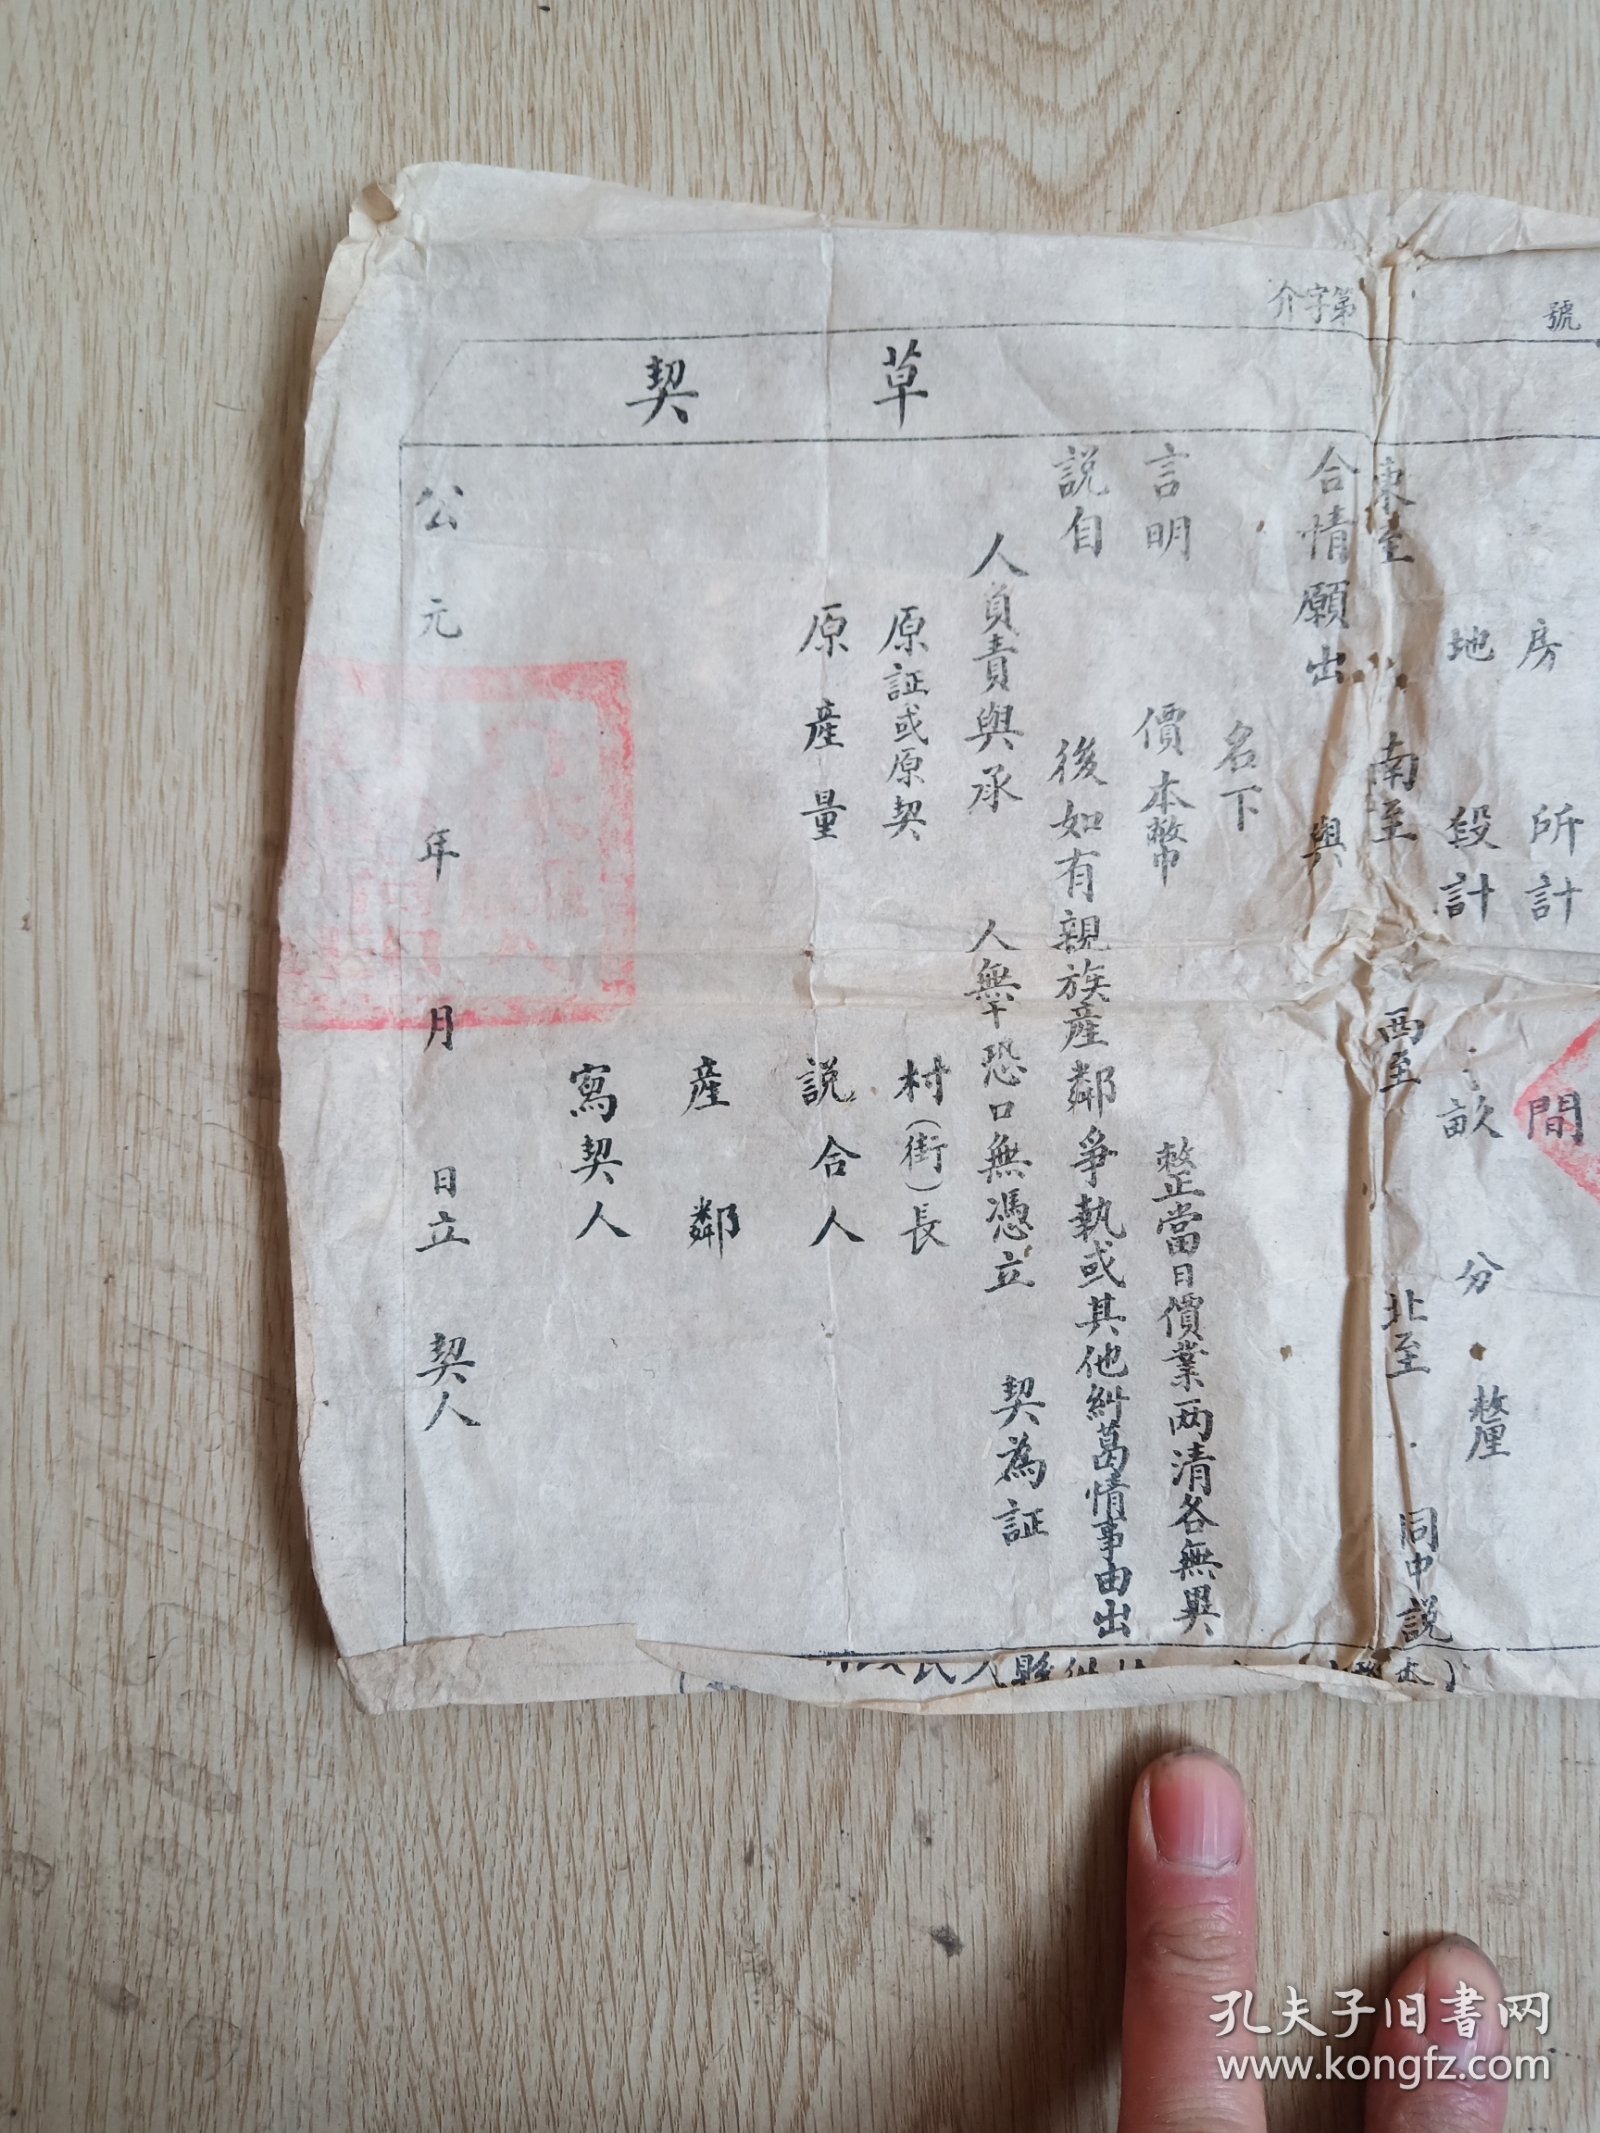 介字第 號
草 契
房 所計 間
地 段計 畝 分 整厘
東至 南至 西至 北至 同中説
合情願出 與
名下
言明 價本幣 整正當日價業两清各無異
説自 後如有親族產鄰爭執或其他糾葛情事由出
人負責與承 人無干恐口無憑立 契為証
原証或原契 村(街)長
原產量 説合人
產鄰
寫契人
公元 年 月 日立 契人
孔夫子旧書网
www.kongfz.com